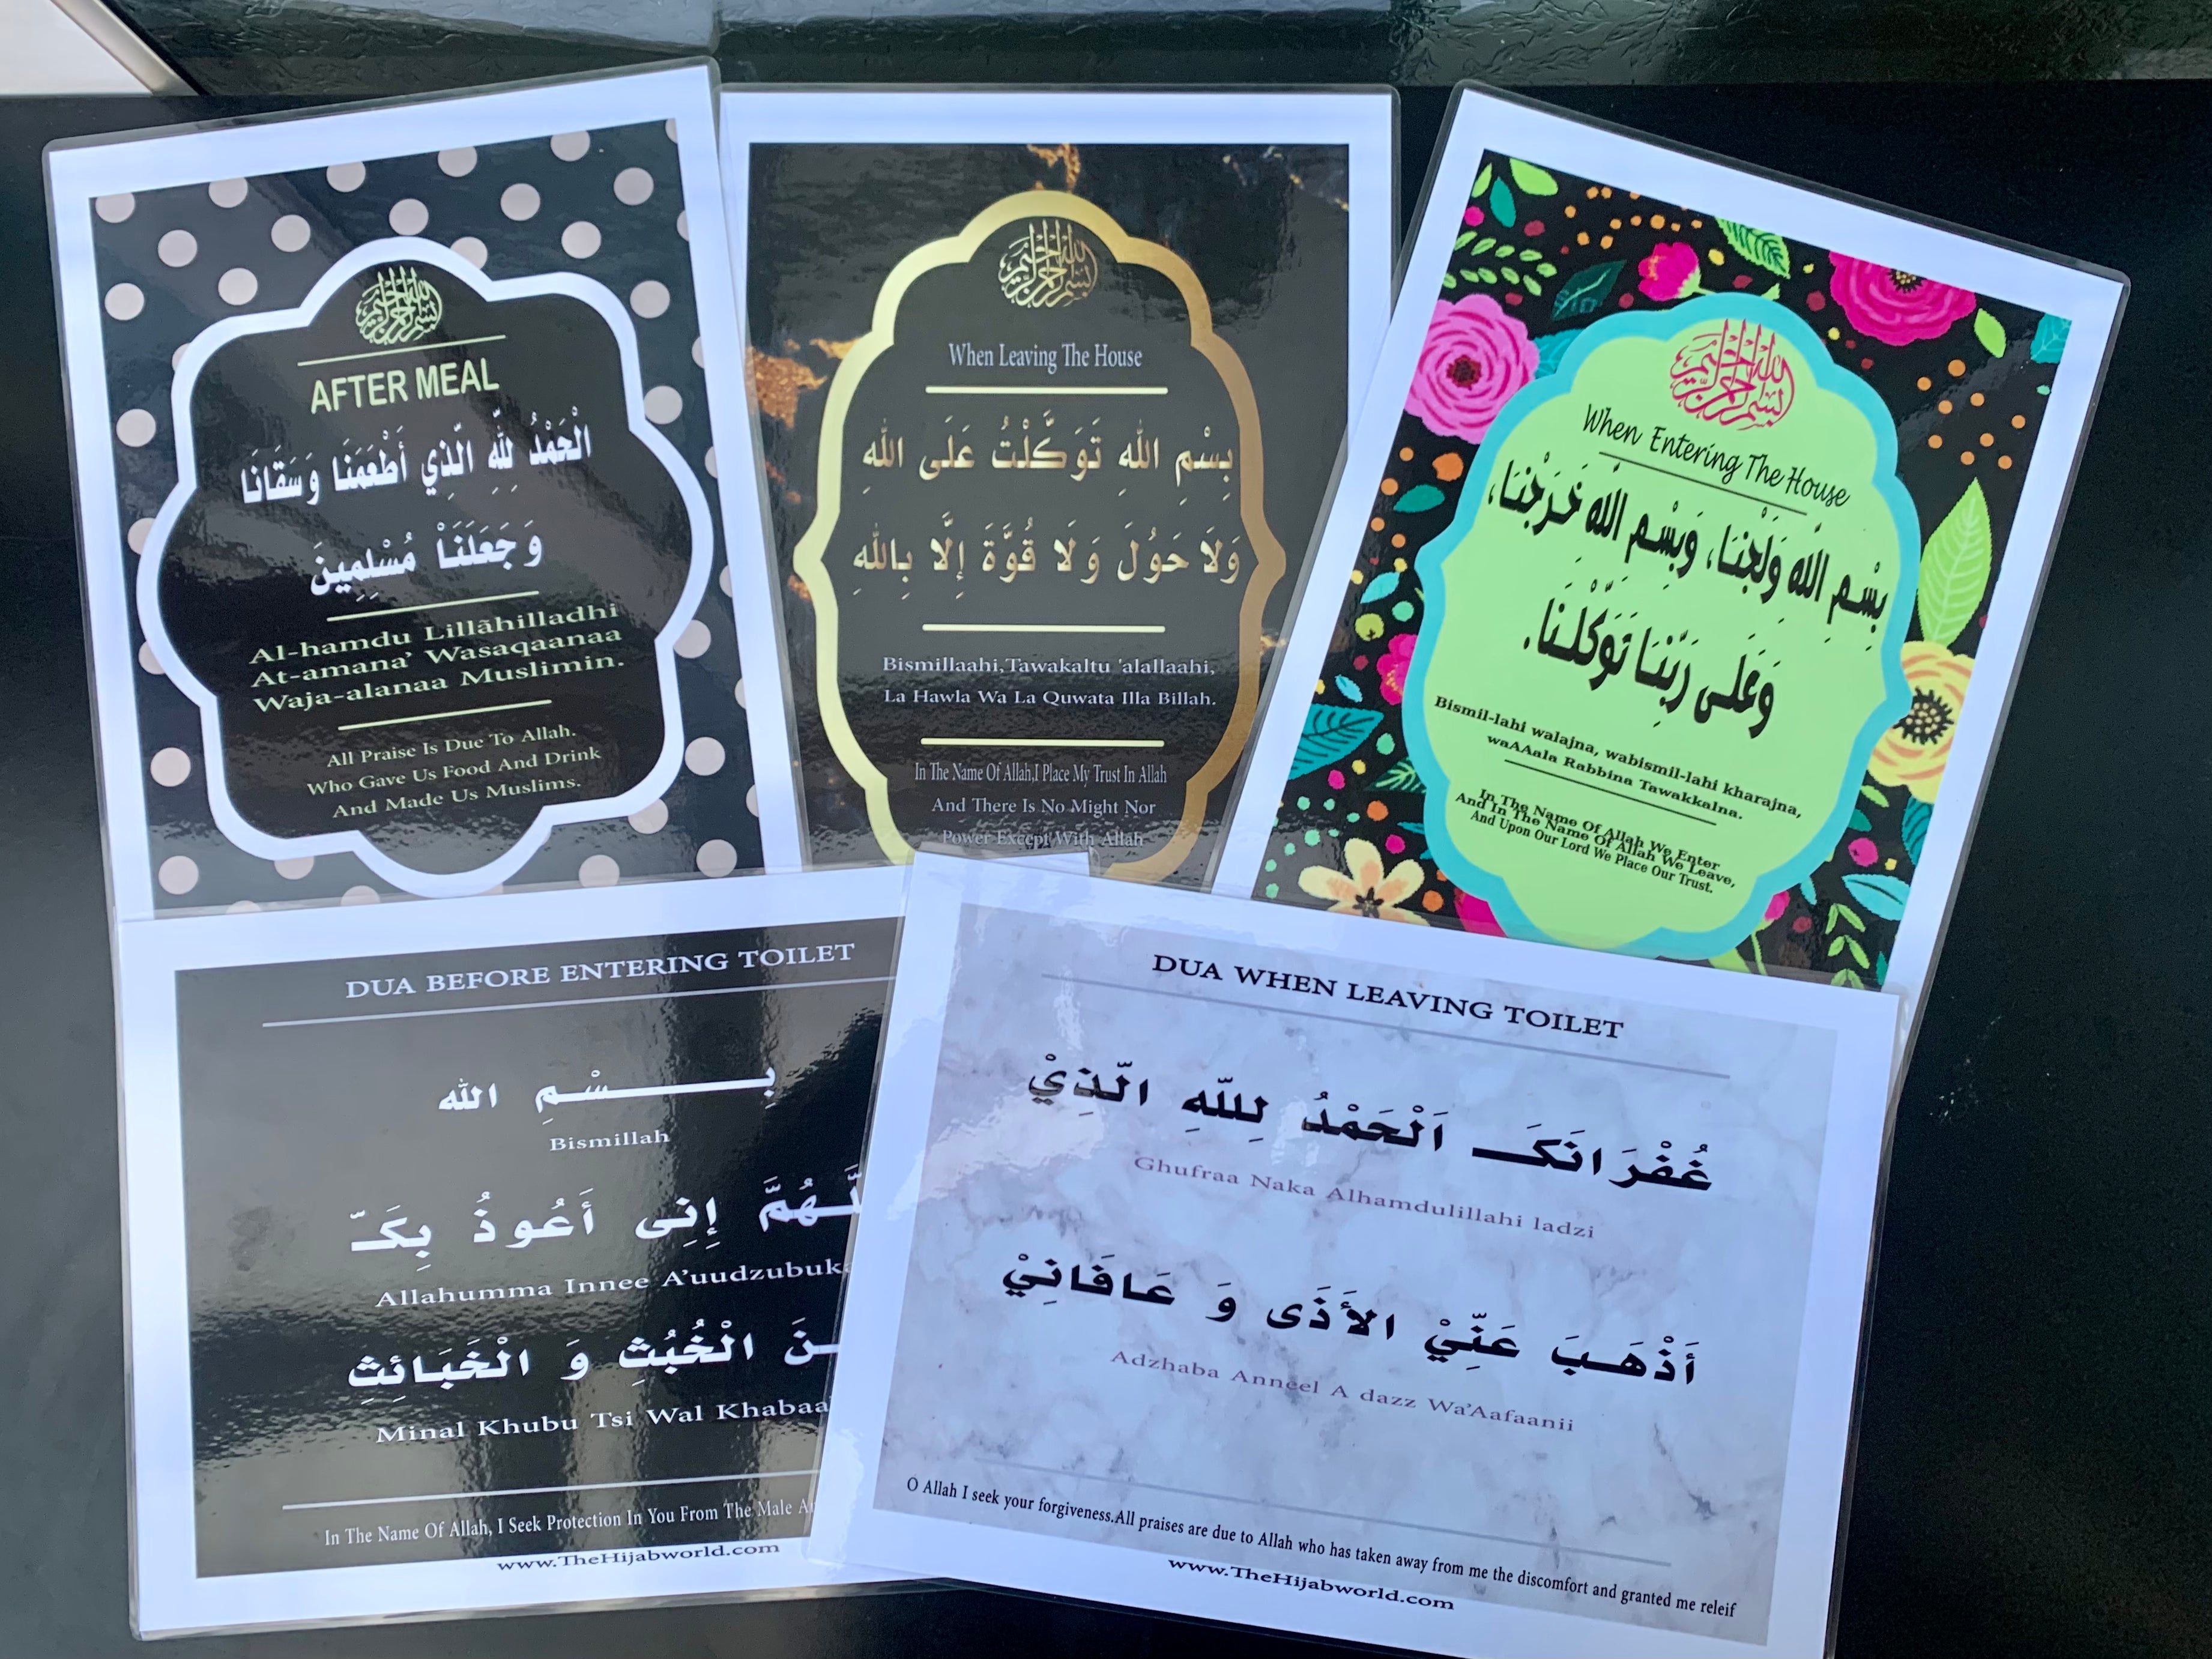 بسم الله الرحمن الرحيم
AFTER MEAL
الْحَمْدُ لِلَّهِ الَّذِي أَطْعَمَنَا وَسَقَانَا
وَجَعَلَنَاْ مُسْلِمِينَ
Al-hamdu Lillãhilladhi
At-amana’ Wasaqaanaa
Waja-alanaa Muslimin.
All Praise Is Due To Allah.
Who Gave Us Food And Drink
And Made Us Muslims.
بسم الله الرحمن الرحيم
When Leaving The House
بِسْمِ اللهِ تَوَكَّلْتُ عَلَى اللهِ
وَلَا حَوُلَ وَلَا قُوَّةَ إِلَّا بِاللهِ
Bismillaahi,Tawakaltu 'alallaahi,
La Hawla Wa La Quwata Illa Billah.
In The Name Of Allah,I Place My Trust In Allah
And There Is No Might Nor
Power Except With Allah
بسم الله الرحمن الرحيم
When Entering The House
بِسْمِ اللَّهِ وَلَجْنَا، وَبِسْمِ اللَّهِ خَرَجْنَا،
وَعَلَى رَبِّنَا تَوَكَّلْنَا.
Bismil-lahi walajna, wabismil-lahi kharajna,
waAAala Rabbina Tawakkalna.
In The Name Of Allah We Enter
And In The Name Of Allah We Leave,
And Upon Our Lord We Place Our Trust.
DUA BEFORE ENTERING TOILET
بِـــسْمِ الله
Bismillah
إِنِى أَعُوذُ بِكَـّ
Allahumma Innee A’uudzubuka
الْخُبُثِ وَ الْخَبَائِثِ
Minal Khubu Tsi Wal Khabaa
In The Name Of Allah, I Seek Protection In You From The Male
www.TheHijabworld.com
DUA WHEN LEAVING TOILET
غُفْرَانَكَـــ اَلْحَمْدُ لِللّهِ الَّذِيْ
Ghufraa Naka Alhamdulillahi ladzi
أَذْهَـبَ عَنِّيْ الأَذَى وَ عَافَانِيْ
Adzhaba Anneel A dazz Wa’Aafaanii
O Allah I seek your forgiveness.All praises are due to Allah who has taken away from me the discomfort and granted me releif
www.TheHijabworld.com